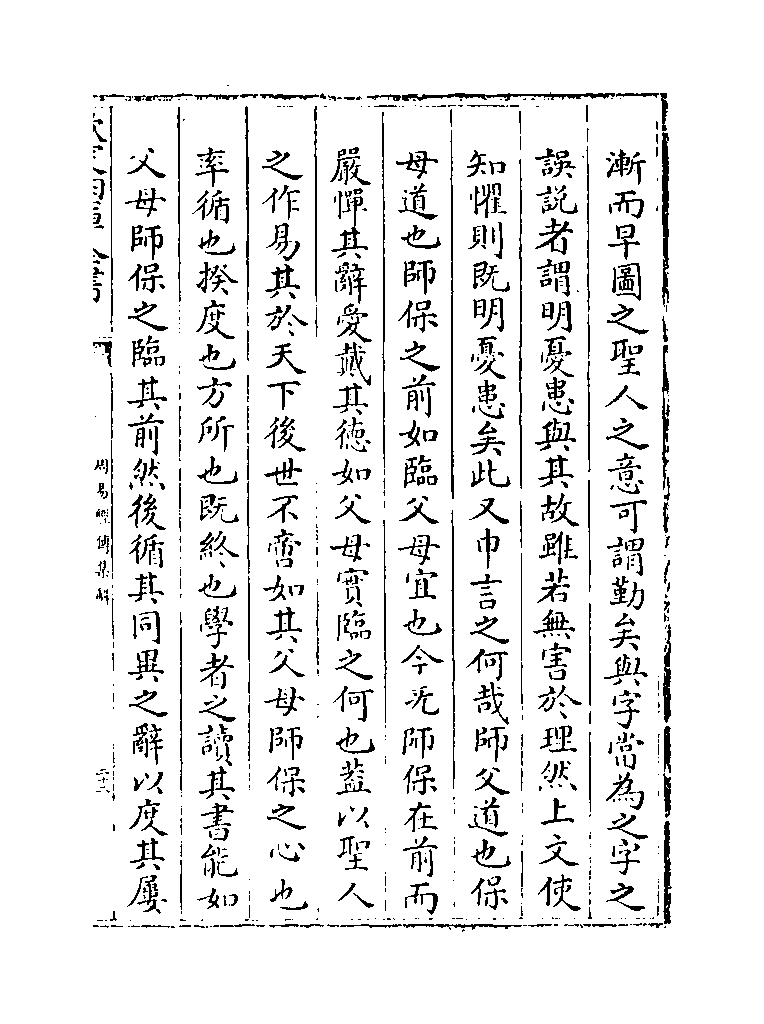 漸而早圖之聖人之意可謂勤矣與字當為之字之
誤説者謂明憂患與其故雖若無害於理然上文使
知懼則既明憂患矣此又申言之何哉師父道也保
母道也師保之前如臨父母宜也今无師保在前而
嚴憚其辭愛戴其徳如父母實臨之何也葢以聖人
之作易其於天下後世不啻如其父母師保之心也
率循也揆度也方所也既終也學者之讀其書能如
父母師保之臨其前然後循其同異之辭以度其屢
欽定四庫全書
周易經傳集解
三十三